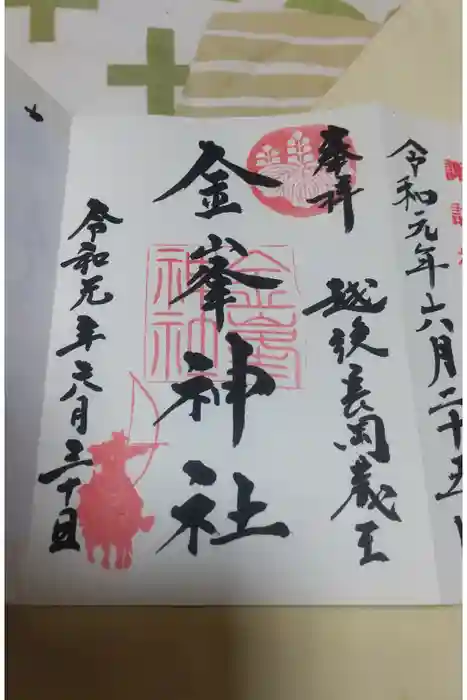 令和元年六月二十五日
奉拝
越後長岡蔵王
金峯神社
金峯神社
令和元年六月三十日